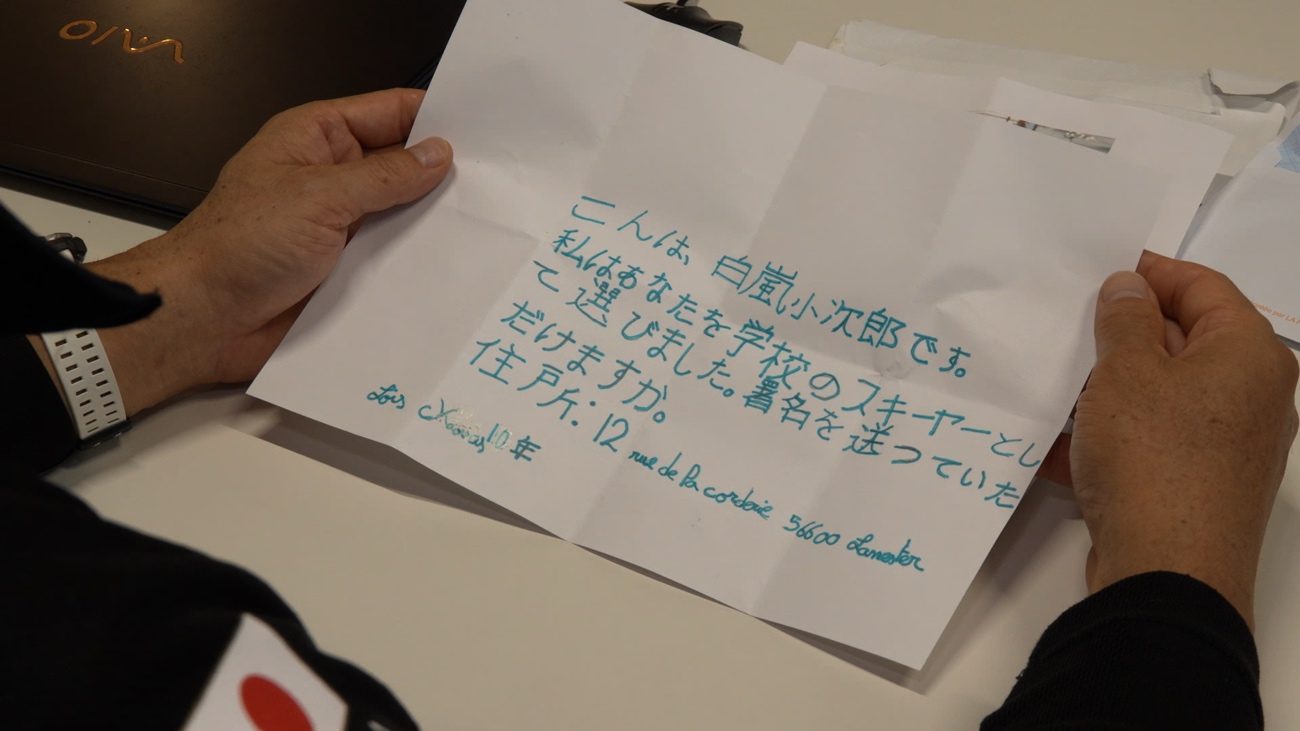 VAIO
こんは、白嵐小次郎です。
私はあなたを学校のスキーヤーとし
て選びました。署名を送っていた
だけますか。
住所: 12 rue de la corderie 56600 Lanester
10年